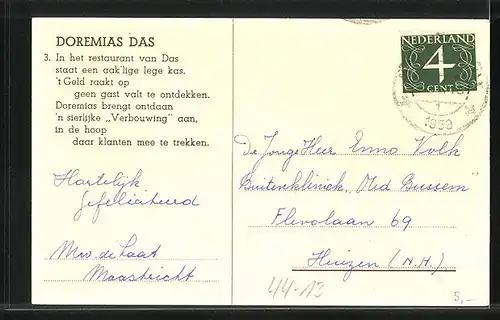 DOREMIAS DAS
3. In het restaurant van Das
staat een aak'lige lege kas.
't Geld raakt op
geen gast valt te ontdekken.
Doremias brengt ontdaan
'n sierlijke „Verbouwing" aan,
in de hoop
daar klanten mee te trekken.
Hartelijk
gefeliciteerd
Mw. de Laat
Maastricht
NEDERLAND
4
CENT
1
1959
De Jonge Heer Enno Volk
Buitenkliniek „Oud Bussem"
Flevolaan 69
Huizen (N.H.)
44-13
5,-